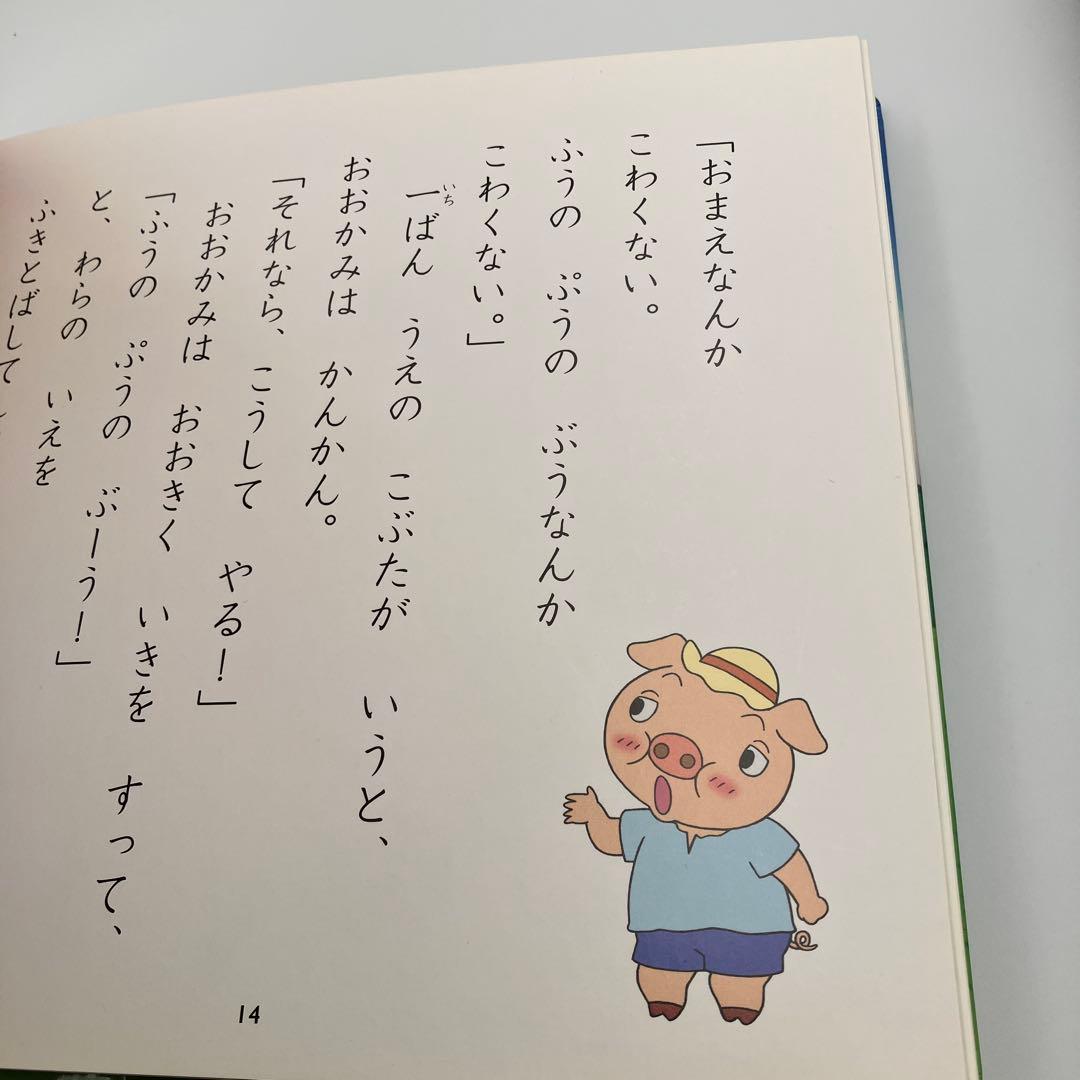 「おまえなんか
こわくない。
ふうの　ぷうの　ぶうなんか
こわくない。」
一ばん　うえの　こぶたが　いうと、
いち
おおかみは　かんかん。
「それなら、こうして　やる！」
おおかみは　おおきく　いきを　すって、
「ふうの　ぷうの　ぶーう！」
と、わらの　いえを
ふきとばして
14